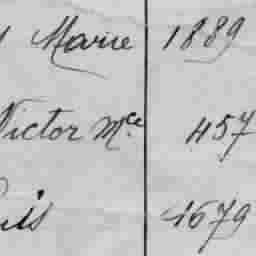 Marie 1889
Victor Mce 457
1679